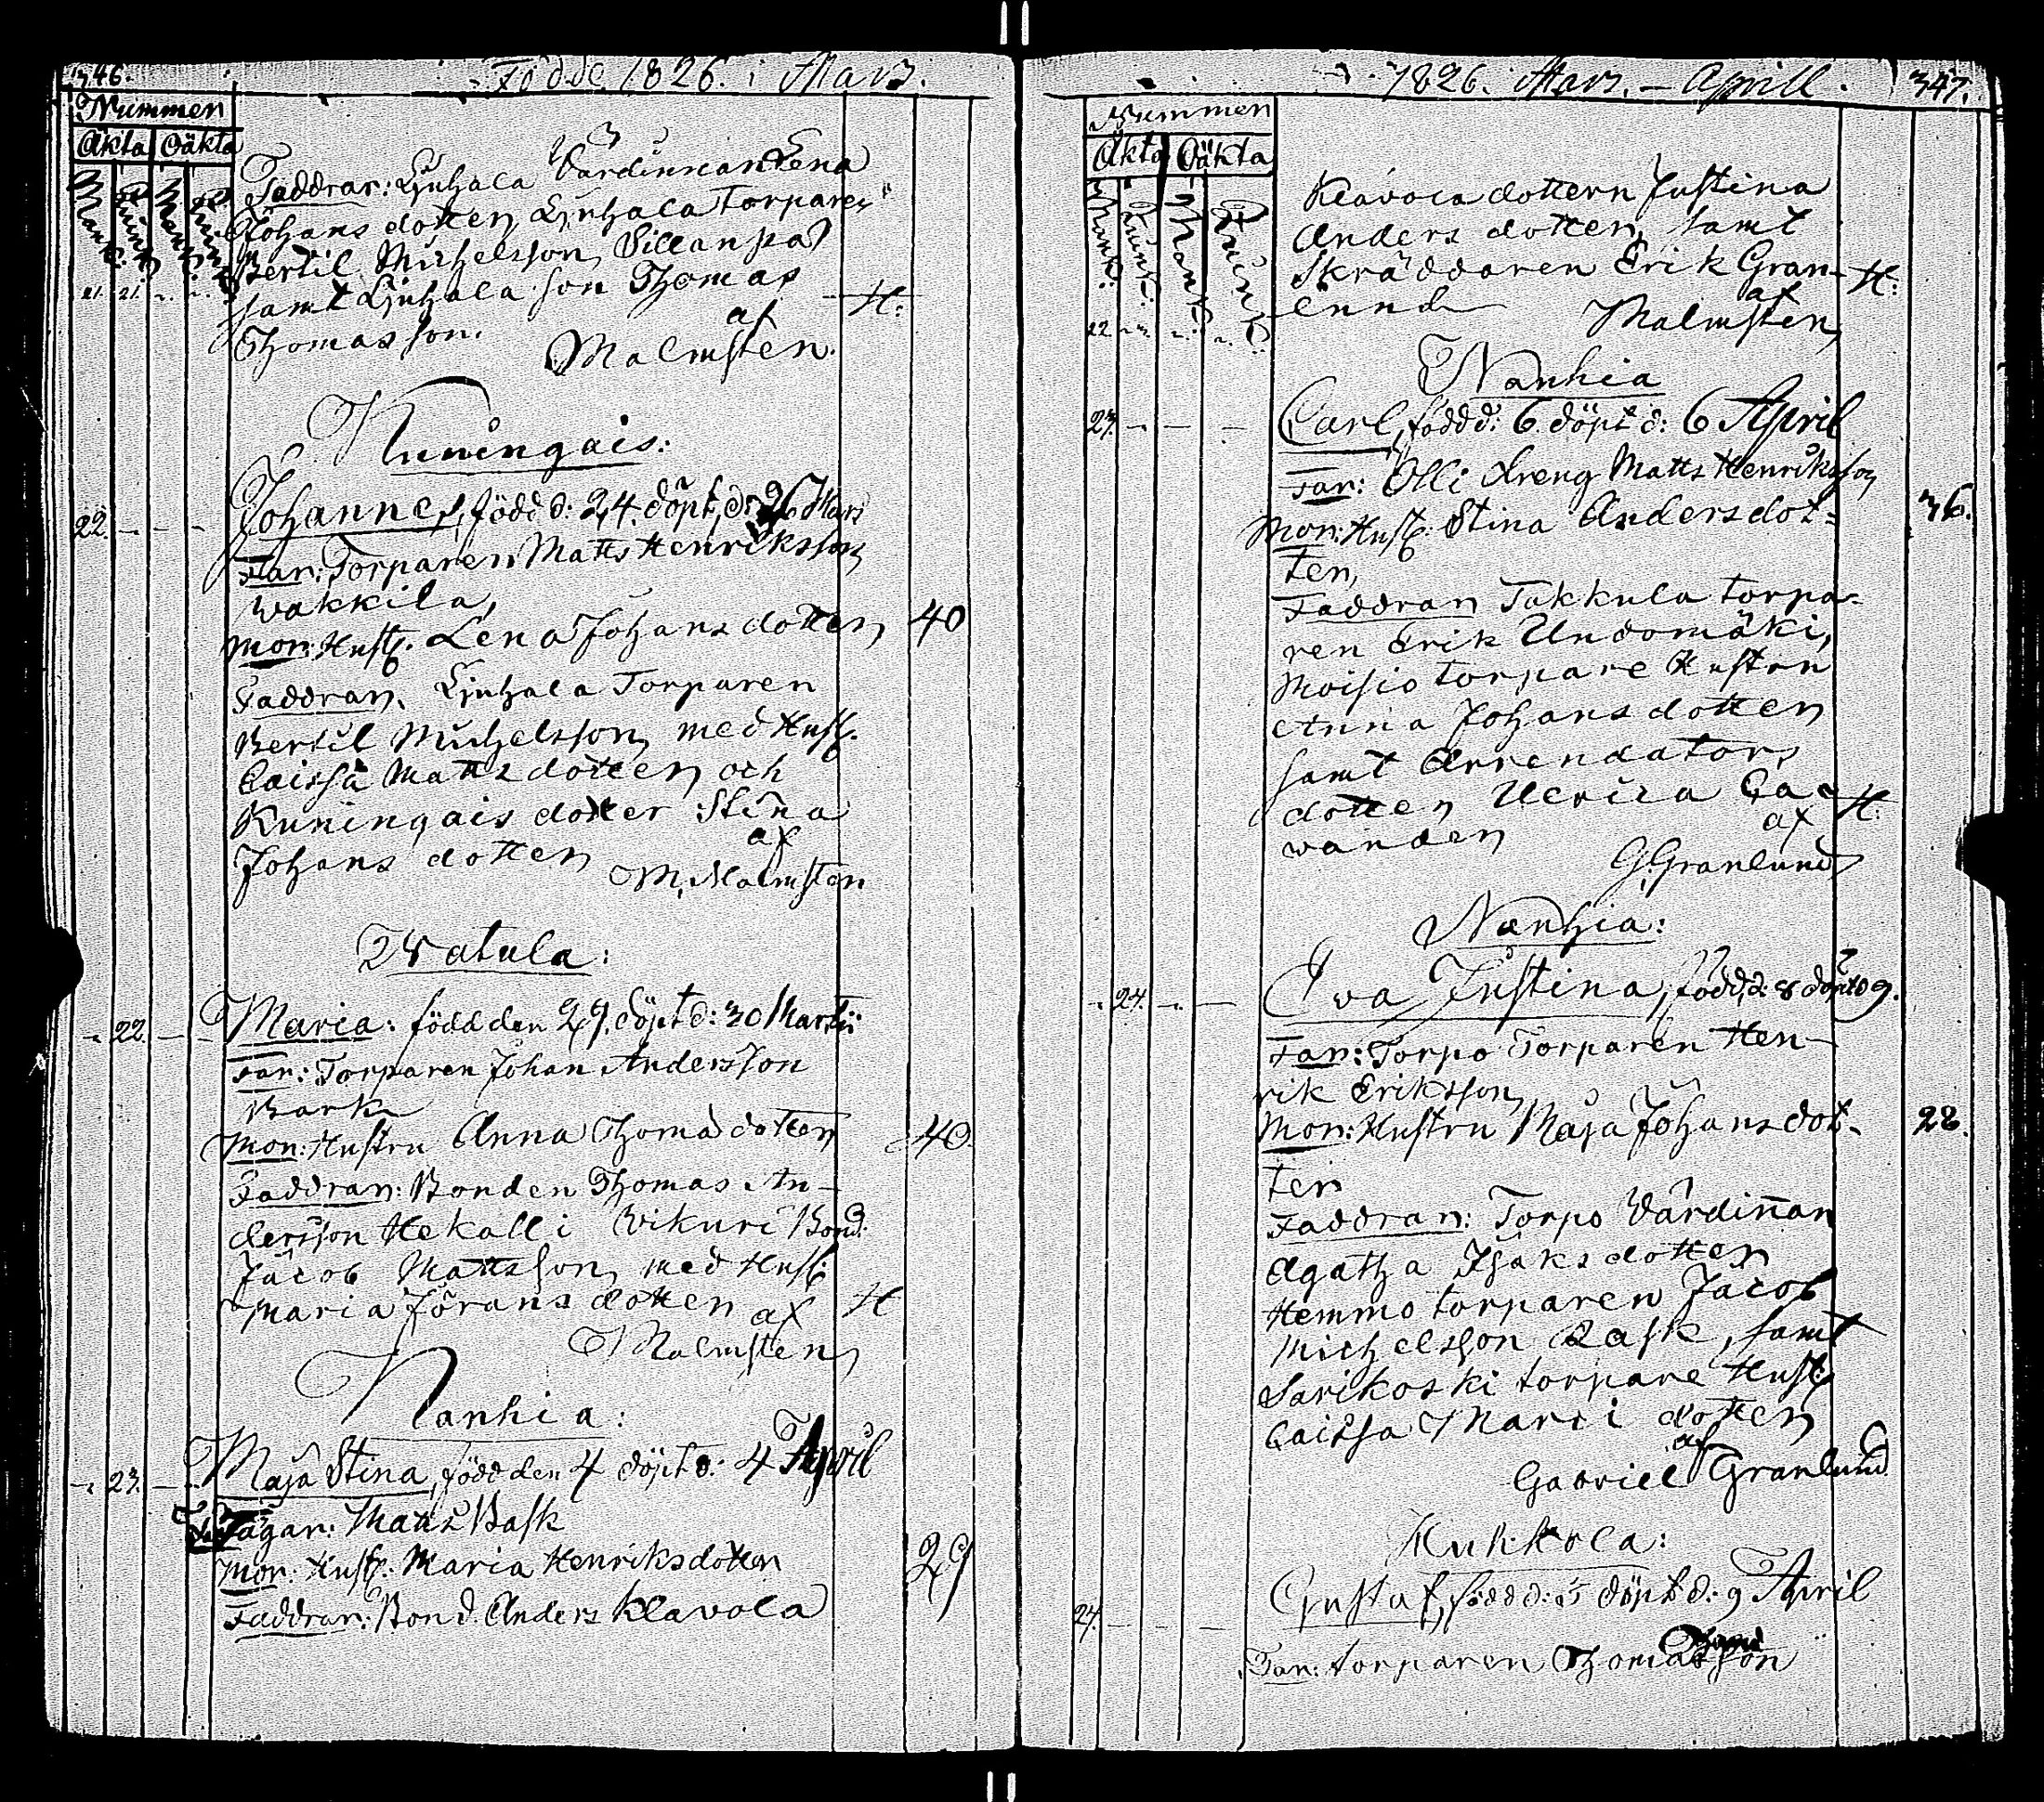 346.
Födde 1826. i Mars.
Nummer
Äkta Oäkta
Mank. Qvink. Mank. Qvink.
21. 21. - -
Faddrar: Ljuhala Värdinnan Lena
Johans dotter, Ljuhala Torparen
Bertil Michelsson Sillanpää
samt Ljuhala son Thomas
Thomasson. af H.
Malmsten.
Kuningais:
22. - - -
Johannes, född d: 24. döpt d: 26 Mars
Far: Torparen Matts Henriksson
Wakkila,
Mor: Hust. Lena Johans dotter, 40
Faddrar. Ljuhala Torparen
Bertil Michelsson, med Hust.
Caissa Matts dotter och
Kuningais dotter Stina
Johans dotter af
M. Malmsten
Watula:
- 22. - -
Maria: född den 29. döpt d: 30 Martii
Far: Torparen Johan Andersson
Bark
Mor: Hustru Anna Thoma dotter 40.
Faddrar: Bonden Thomas An-
dersson Hekalli Wikuri Bond:
Jacob Mattsson, med Hust:
Maria Jörans dotter af H
Malmsten
Nanhia:
- 23. - -
Maja Stina, född den 4 döpt d: 4 April
Matts Bask
Mor: Hust: Maria Henriksdotter 29
Faddrar: Bond. Anders Klavola
1826. Mars. - Aprill. 347.
Nummer
Äkta Oäkta
Mank. Qvink. Mank. Qvink.
22 - - -
Klavola dottern Justina
Anders dotter, samt
Skräddaren Erik Gran- H.
lund af
Malmsten
Nanhia
23. - - -
Carl, född d: 6. döpt d: 6 April
Far: Olli dreng Matts Henriksson
Mor: Hust: Stina Andersdot- 36.
ter,
Faddrar Takkula torpa-
ren Erik Undomäki,
Moisio torpare Hustru
Anna Johans dotter
samt Arrendators
dotter Ulrica Ca- H.
wander af
G. Granlund
Nanhia:
- 24. - -
Eva Justina, född d: 8 döpt d 9.
Far: Torpo Torparen Hen-
rik Eriksson,
Mor: Hustru Maja Johans dot- 28.
ter
Faddrar: Torpo Värdinnan
Agatha Isaks dotter
Hemmo torparen Jacob
Michelsson Rask, samt
Sarikoski torpare Hust:
Caissa Marci dotter
af
Gabriel Granlund
Kukkola:
24. - - -
Gustaf, född d: 5 döpt d: 9 April
Far: torparen Thomas